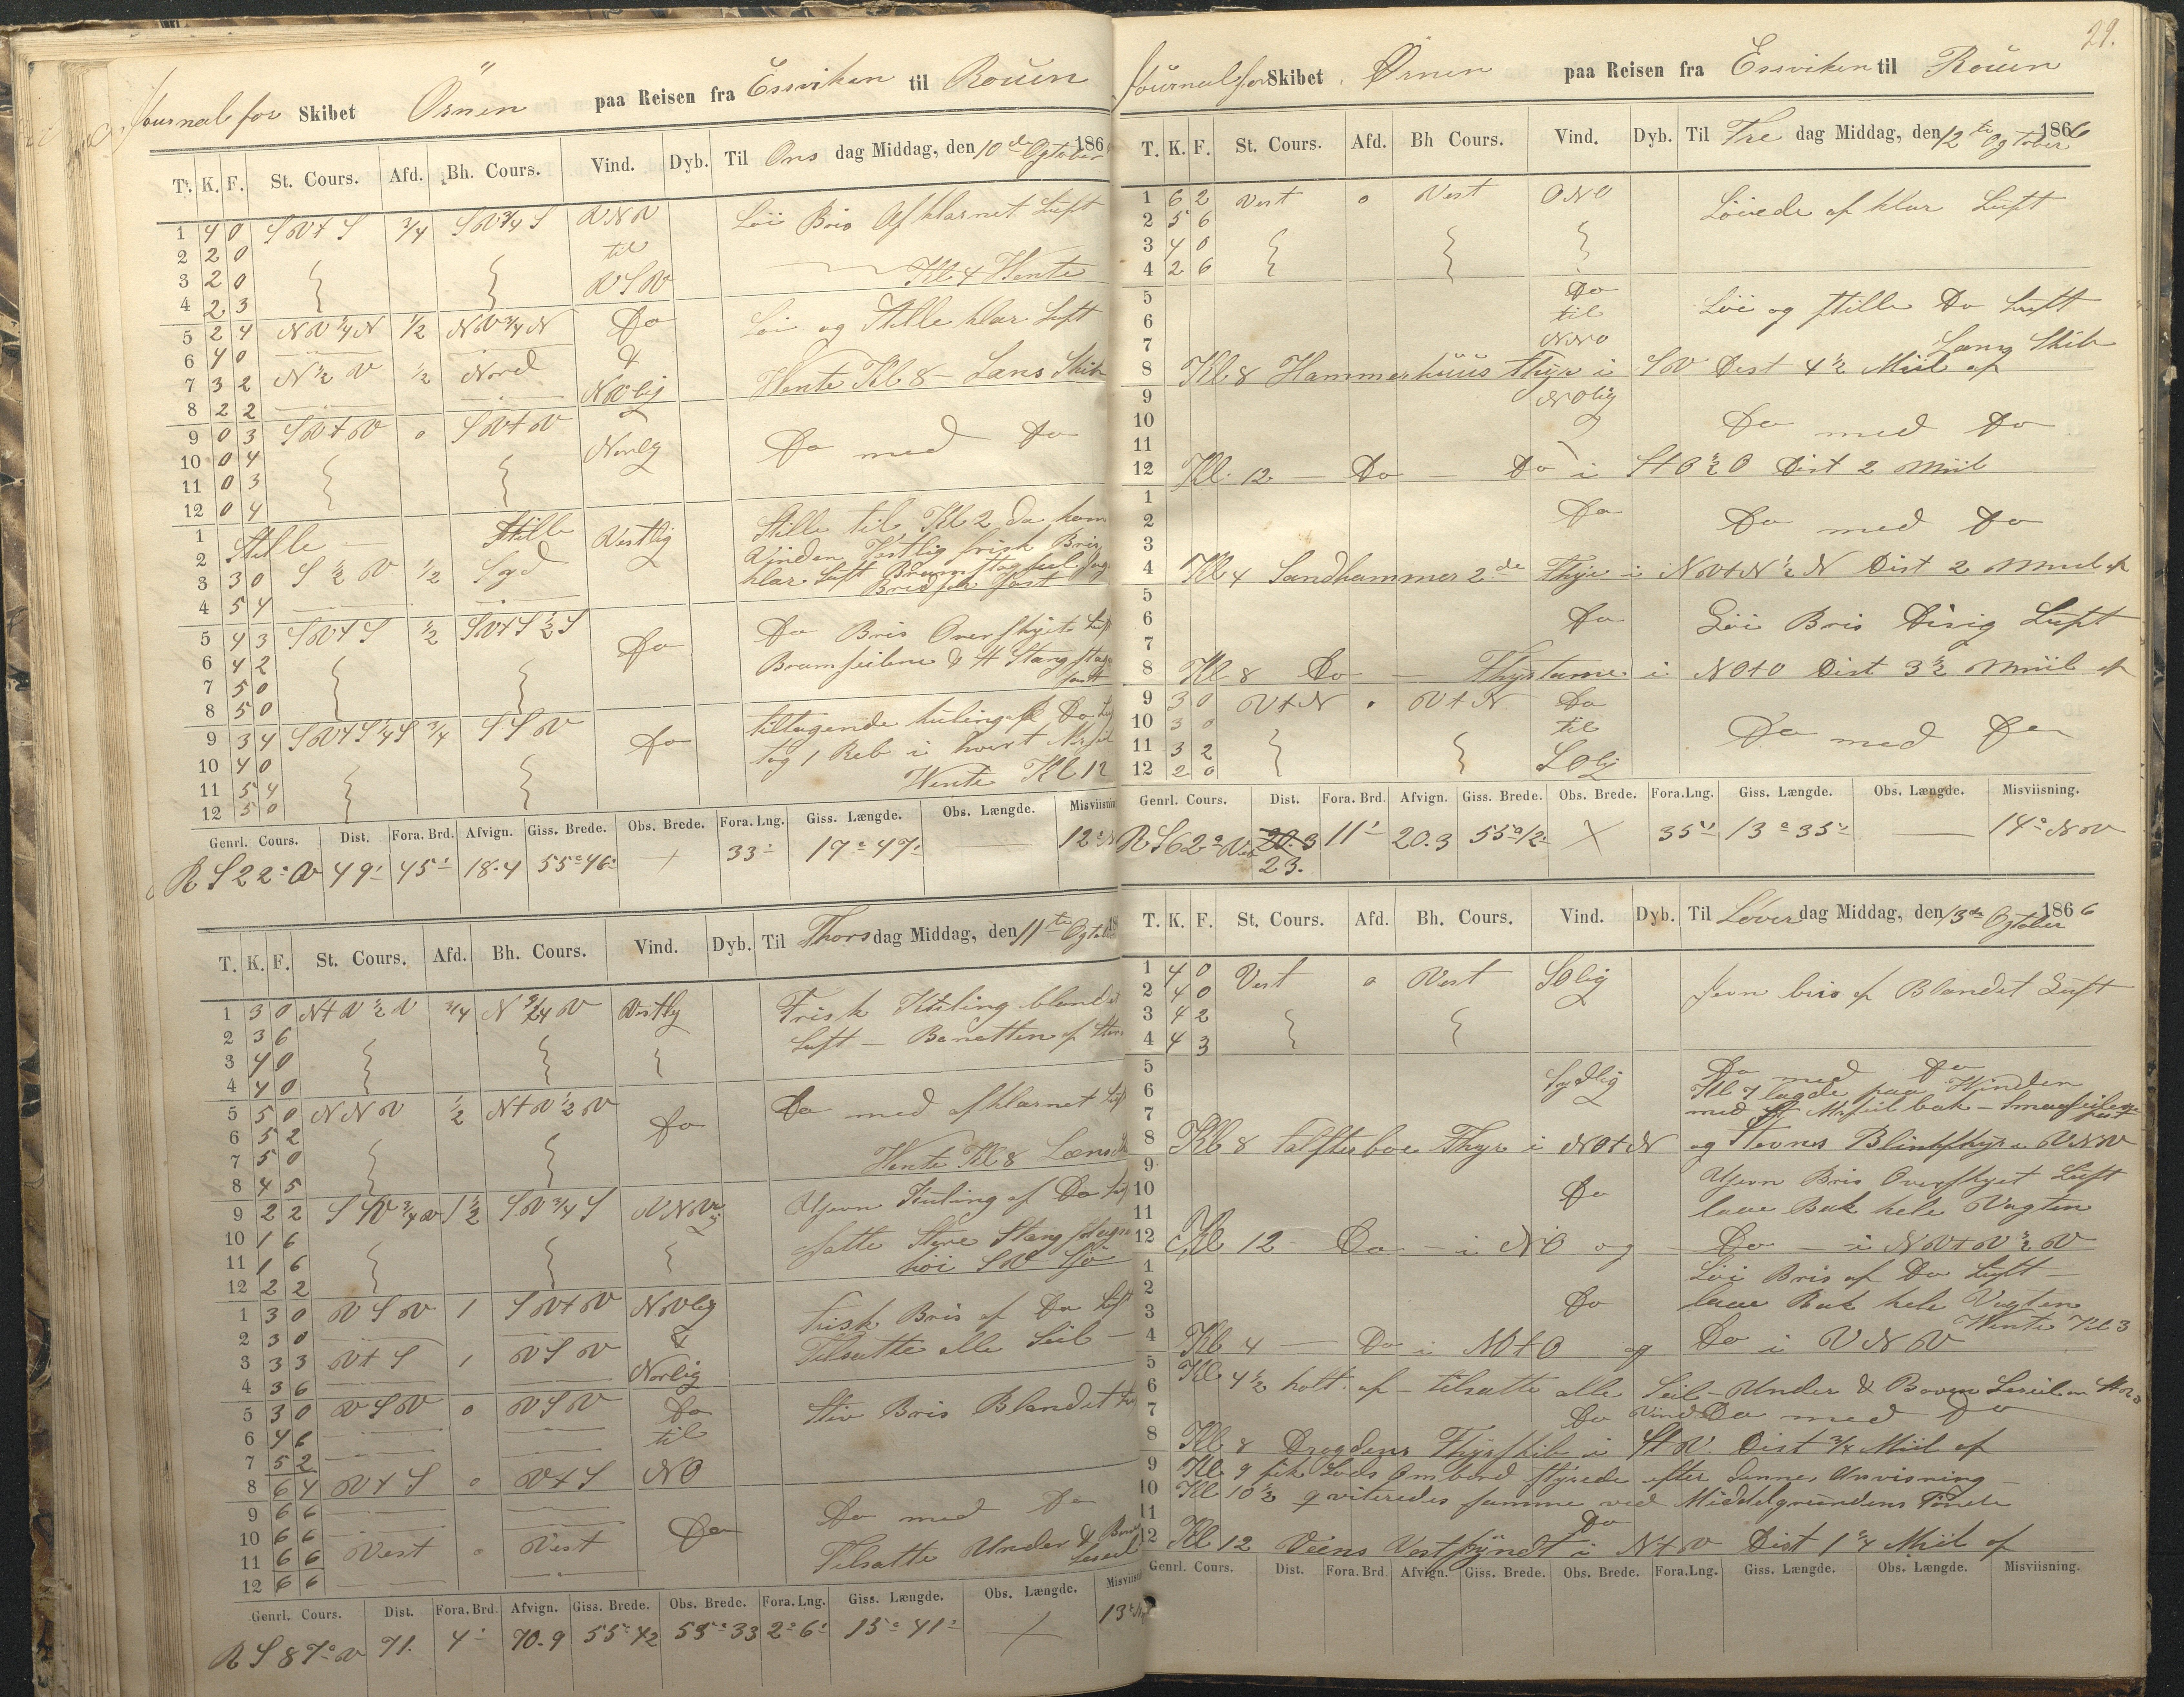 Journal for Skibet Örnen paa Reisen fra Essviken til Rouen
T. K. F. St. Cours. Afd. Bh. Cours. Vind. Dyb. Til Ons dag Middag, den 10de Ogtober 186
1 4 0 SV+S 3/4 SV 3/4 S VNV Löi Bris Afklarnet Luft
2 2 0 til
3 2 0 VSV Kl 4 Vente
4 2 3
5 2 4 NV 1/4 N 1/2 NV 3/4 N Do Löi og Stille klar Luft
6 4 0 &
7 3 2 N 1/2 V 1/2 Nord NVlig Vente Kl 8 – Lans Skib
8 2 2
9 0 3 SV+V 0 SV+V
10 0 4 Norlig Do med Do
11 0 3
12 0 4
1 Stille — Stille Vestlig Stille til Kl 2 da kom
2 S 1/2 V 1/2 Syd Vinden Vestlig frisk Bris
3 3 0 klar Luft
4 5 4 fast
5 4 3 SV+S 1/2 SV+S 1/2 S Do Do Bris Overskyet Luft
6 4 2 Bramseilene & St Stang stag
7 5 0 fast
8 5 0
9 3 4 SV+S 1/4 S 3/4 SSV Do tiltagende kuling af Do
10 4 0 tog 1 Reb i hvert
11 5 4 Vente Kl 12
12 5 0
Genrl. Cours. Dist. Fora. Brd. Afvign. Giss. Brede. Obs. Brede. Fora. Lng. Giss. Længde. Obs. Længde. Misviisning
R S 22° V 49' 45' 18.4 55° 46' + 33' 17° 47' — 12°
T. K. F. St. Cours. Afd. Bh. Cours. Vind. Dyb. Til Thors dag Middag, den 11te
1 3 0 N+V 1/2 V 3/4 N V Vestlig Frisk Kuling bland
2 3 6 Luft —
3 4 0
4 4 0
5 5 0 NNV 1/2 N+V 1/2 V Do Do med afklarnet
6 5 2
7 5 0 Vente Kl 8
8 4 5
9 2 2 SV 3/4 V 1 1/2 SV 3/4 S Ujevn Kuling af Do
10 1 6 satte Store Stang
11 1 6 höi SV Sjö
12 2 2
1 3 0 VSV 1 SV+V NVlig Frisk Bris af Do Luft
2 3 0 & Tilsatte alle Seil —
3 3 3 V+S 1 VSV Norlig
4 3 6
5 3 0 VSV 0 VSV Do Stiv Bris Blandet
6 4 6 til
7 5 2
8 6 4 V+S 0 V+S NO
9 6 6 Do med Do
10 6 6 Vest 0 Vest Do Tilsatte Under &
11 6 6
12 6 6
Genrl. Cours. Dist. Fora. Brd. Afvign. Giss. Brede. Obs. Brede. Fora. Lng. Giss. Længde. Obs. Længde.
R S 87° V 71. 4' 70.9 55° 42 55° 33 2° 6' 15° 41' + 13°
29.
Journal for Skibet Ørnen paa Reisen fra Essviken til Rouen
T. K. F. St. Cours. Afd. Bh Cours. Vind. Dyb. Til Fre dag Middag, den 12te Ogtober 1866
1 6 2 Vest 0 Vest ONO Löiede af klar Luft
2 5 6
3 4 0
4 2 6
5 Do
6 til Löi og stille Do Luft
7 NNO Lang Skib
8 Kl 8 Hammerhuus Fhyr i SV Dist 4 1/2 Miil af
9 NOlig
10 Do med Do
11
12 Kl. 12 — Do — Do i S+O 1/2 O Dist 2 Miil
1
2 Do Do med Do
3
4 Kl 4 Sandhammer 2de Fhyr i NV+N 1/2 N Dist 2 Miil af
5
6 Do Löi Bris Disig Luft
7
8 Kl 8 Do — Fhystarne i NO+O Dist 3 1/2 Miil af
9 3 0 V+N 0 V+N Do
10 3 0 til Do med Do
11 3 2 SOlig
12 2 0
Genrl. Cours. Dist. Fora. Brd. Afvign. Giss. Brede. Obs. Brede. Fora. Lng. Giss. Længde. Obs. Længde. Misviisning.
R S 62° Vest 20.3 11' 20.3 55° 12' × 35' 13° 35' — 14° NV
23.
T. K. F. St. Cours. Afd. Bh. Cours. Vind. Dyb. Til Löver dag Middag, den 13de Ogtober 1866
1 4 0 Vest 0 Vest SOlig Jevn bris af Blandet Luft
2 4 0
3 4 2
4 4 3
5 Do med Do
6 Sydlig Kl 7 lagde paa Vinden
7 med St Mrseil bak – Smaaseilene fast
8 Kl 8 Falsterboe Fhyr i NO+N og Stevns Blinkfhyr i VNV
9 Ujevn Bris Overskyet Luft
10 Do laae Bak hele Vagten
11
12 Kl 12 — Do — i NO og — Do — i NV+V 1/2 V
1 Löi Bris af Do Luft —
2 laae Bak hele Vagten
3 Do Vente Kl 3
4 Kl 4 — Do i NO+O og Do i VNV
5 Kl 4 1/2 holt af – tilsatte alle Seil – Under & Boven Leseil
6
7 Do Vind Do med Do
8 Kl 8 Drogdens Fhyrskib i S+V. Dist 3/4 Miil af
9 Kl 9 fik Lods Ombord styrede efter dennes Anvisning —
10 Kl 10 1/2 qviteredes samme ved Middelgrundens Tönde
11 Do
12 Kl 12 Veens Vestpÿndt i N+V Dist 1 1/4 Miil af
Genrl. Cours. Dist. Fora. Brd. Afvign. Giss. Brede. Obs. Brede. Fora. Lng. Giss. Længde. Obs. Længde. Misviisning.